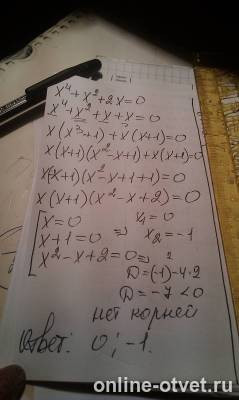 x⁴+x²+2x=0
x⁴+x²+x+x=0
x(x³+1)+x(x+1)=0
x(x+1)(x²-x+1)+x(x+1)=0
x(x+1)(x²-x+1+1)=0
x(x+1)(x²-x+2)=0
x=0 x₁=0
x+1=0 => x₂=-1
x²-x+2=0 =>
D=(-1)-4·2
D=-7<0
нет корней
Ответ: 0; -1.
online-otvet.ru